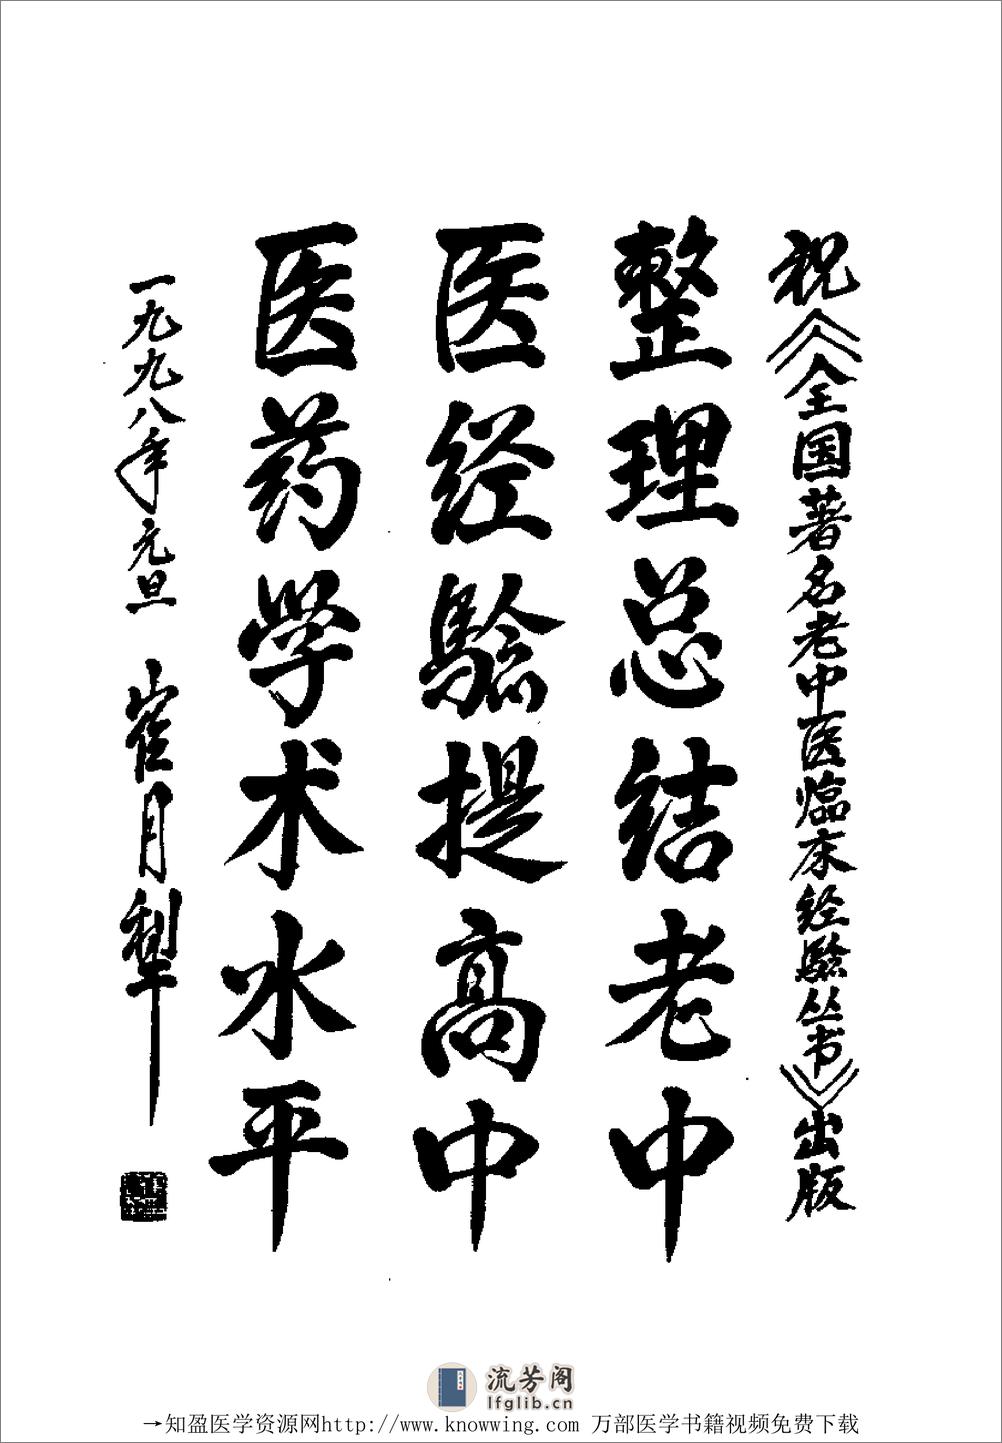 祝《全国著名老中医临床经验丛书》出版
整理总结老中
医经验提高中
医药学术水平
一九九八年元旦 崔月犁
流芳阁
lfglib.cn
→知盈医学资源网http://www.knowwing.com 万部医学书籍视频免费下载